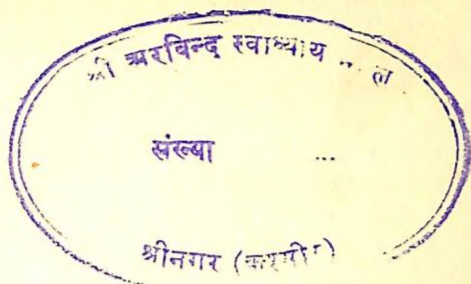 श्री अरविन्द स्वाध्याय
संख्या ...
श्रीनगर (कश्मीर)